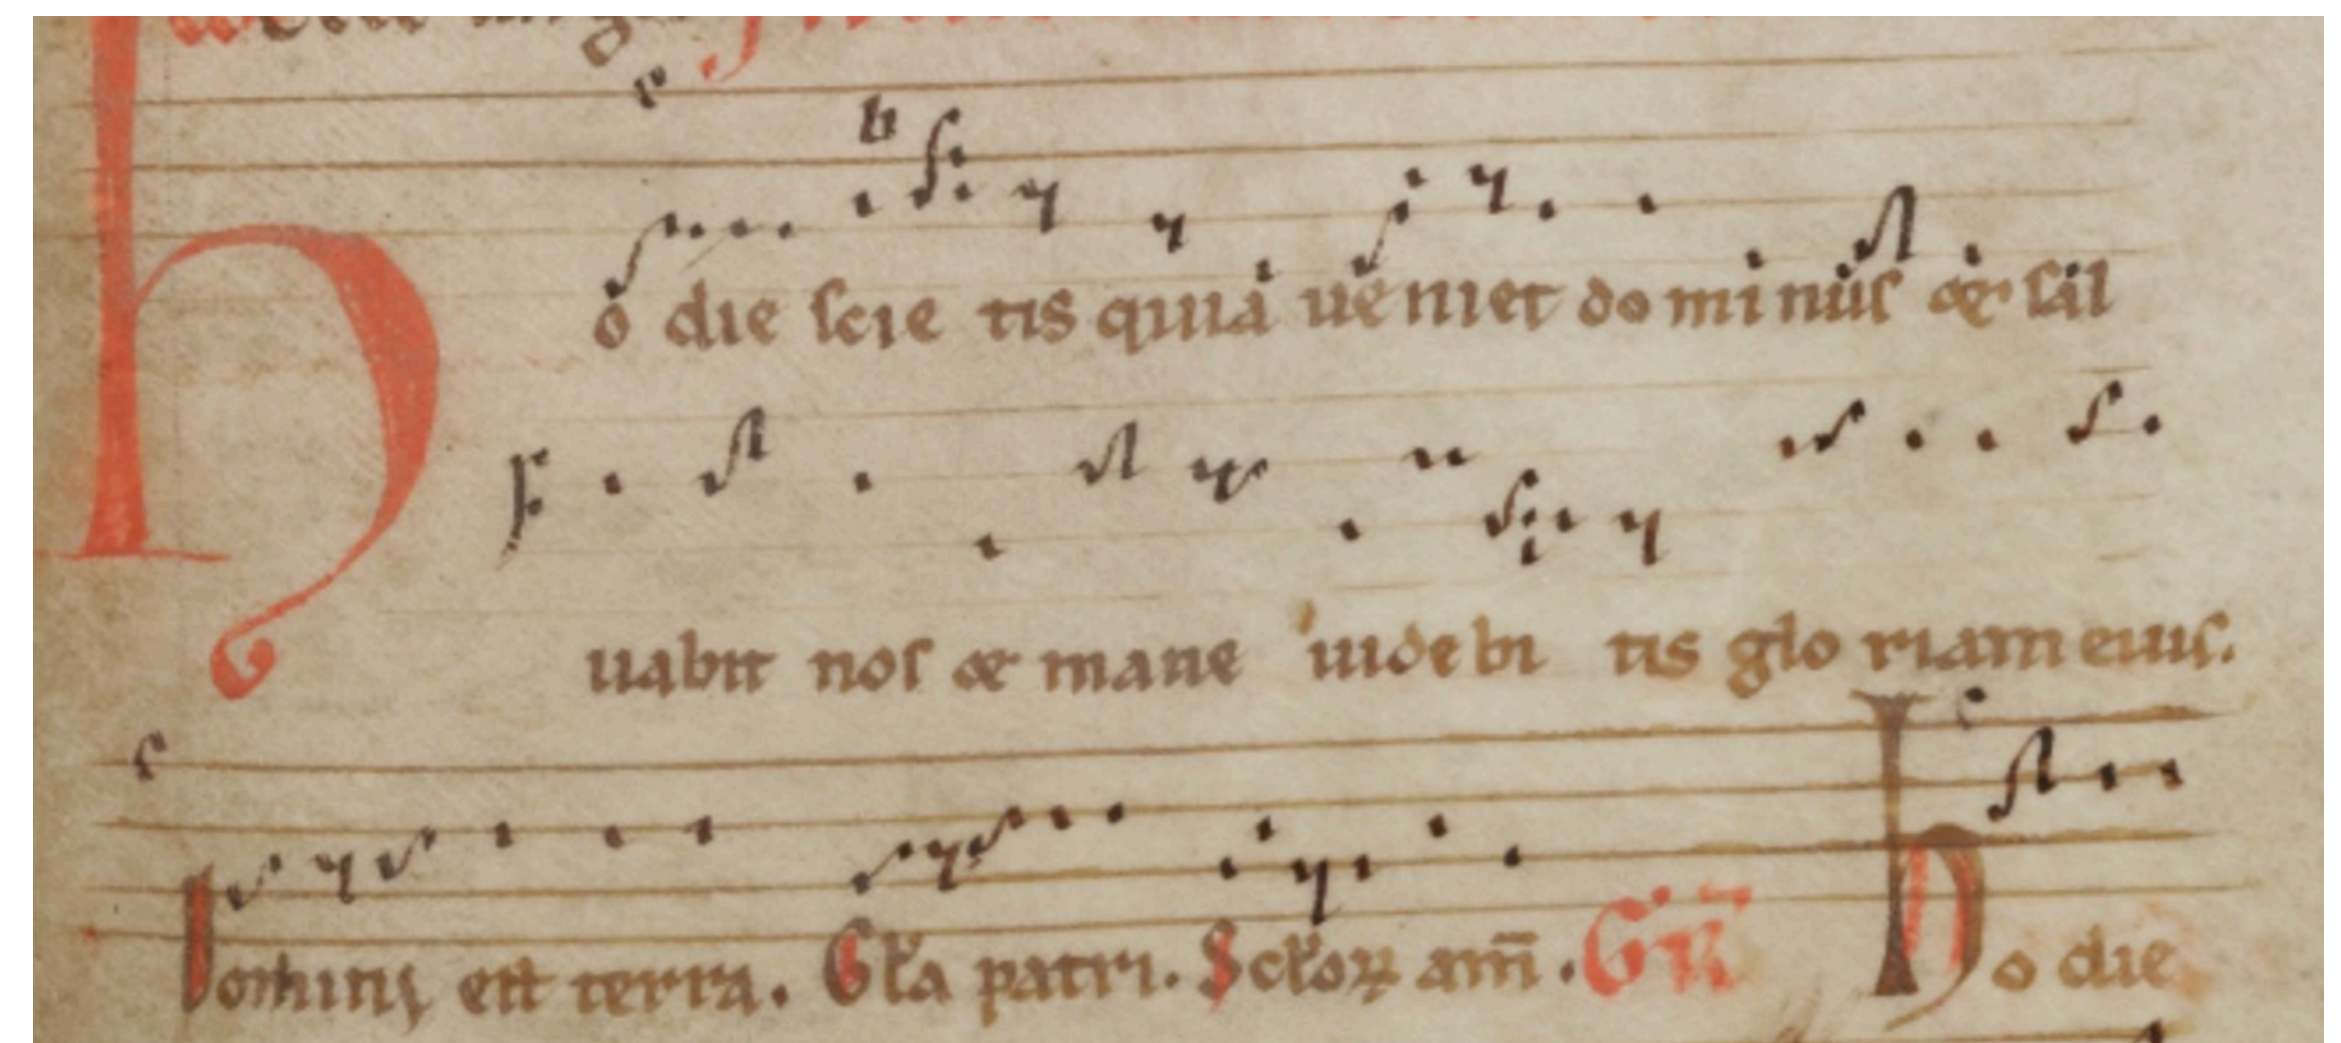 Hodie scietis quia ueniet dominus & sal
uabit nos & mane uidebitis gloriam eius.
Domini est terra. Gła patri. Scłoꝝ am̄. Gr̄ Hodie